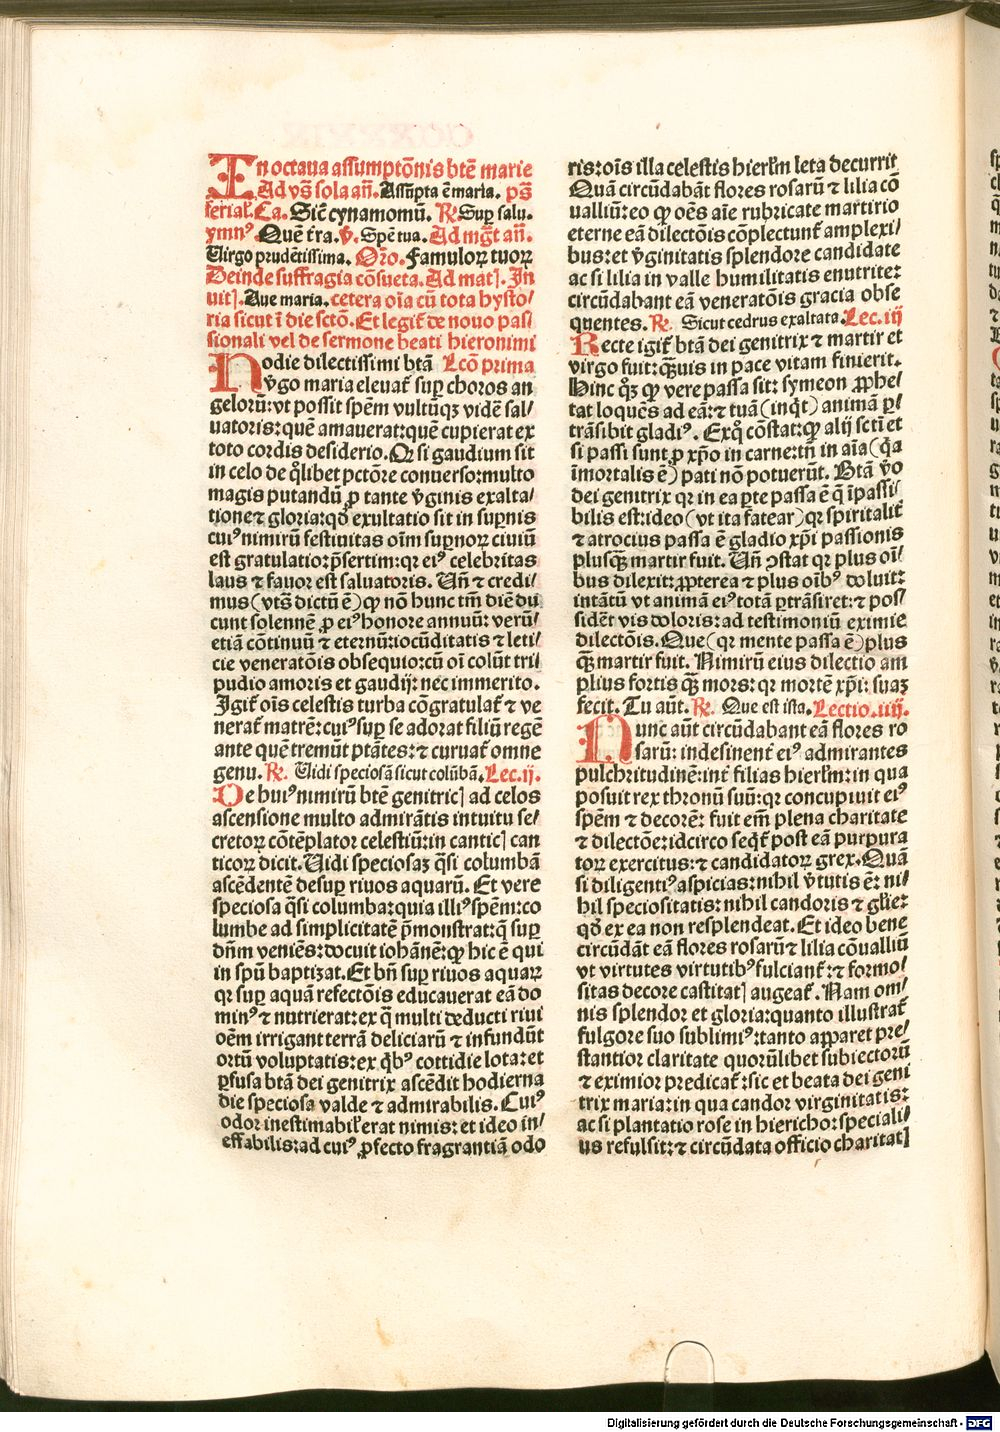 In octaua assumptōnis btē marie
Ad vs̄ sola an̄. Assūpta ē maria. ps̄
ferial᷑. Ca. Sic̄ cynamomū. ℟. Sup̱ salu.
ymnꝰ. Quē t̄ra. v̄. Spē tua. Ad mḡt an̄.
Uirgo prudētissima. Or̄o. Famuloꝝ tuoꝝ
Deinde suffragia cōsueta. Ad matꝭ. In
uitꝭ. Aue maria. cetera oīa cū tota hysto/
ria sicut ī die sctō. Et legit᷑ de nouo pas/
sionali vel de sermone beati hieronimi
Hodie dilectissimi btā Lcō prima
v̄go maria eleuat᷑ sup̱ choros an
gelorū: vt possit spēm vultūqꝫ vidē sal/
uatoris: quē amauerat: quē cupierat ex
toto cordis desiderio. Ꝙ si gaudium sit
in celo de q̊libet pctōre conuerso: multo
magis putandū ꝓ tante v̄ginis exalta/
tione ⁊ gloria: qd̄ exultatio sit in suꝑnis
cuiꝰ nimirū festiuitas oīm suꝑnoꝝ ciuiū
est gratulatio: p̄sertim: qꝛ eiꝰ celebritas
laus ⁊ fauor est saluatoris. Un̄ ⁊ credi/
mus (vts̄ dictū ē) ꝙ nō hunc tm̄ diē du
cunt solennē ꝓ eiꝰ honore annuū: verū/
etiā cōtinuū ⁊ eternū: iocūditatis ⁊ leti/
cie veneratōis obsequio: cū oī colūt tri/
pudio amoris et gaudij: nec immerito.
Igit᷑ oīs celestis turba cōgratulat᷑ ⁊ ve
nerat᷑ matrē: cuiꝰ sup̱ se adorat filiū regē
ante quē tremūt ptātes: ⁊ curuat᷑ omne
genu. ℟. Uidi speciosā sicut colūbā. Lec. ij.
De huiꝰ nimirū btē genitricꝭ ad celos
ascensione multo admirātis intuitu se/
cretoꝝ cōtēplator celestiū: in canticꝭ can
ticoꝝ dicit. Uidi speciosaꝫ q̄si columbā
ascēdentē desup̱ riuos aquarū. Et vere
speciosa q̄si columba: quia illiꝰ spēm: co
lumbe ad simplicitatē p̄monstrat: q̄ sup̱
dn̄m veniēs: docuit iohānē: ꝙ hic ē qui
in spū baptizat. Et bn̄ sup̱ riuos aquaꝝ
qꝛ sup̱ aquā refectōis educauerat eā do
minꝰ ⁊ nutrierat: ex q̄ multi deducti riui
oēm irrigant terrā deliciarū ⁊ infundūt
ortū voluptatis: ex qͥbꝰ cottidie lota: et
ꝑfusa btā dei genitrix ascēdit hodierna
die speciosa valde ⁊ admirabilis. Cuiꝰ
odor inestimabil᷑ erat nimis: et ideo in/
effabilis: ad cuiꝰ ꝓfecto fragrantiā odo
ris: oīs illa celestis hierl̄m leta decurrit
Quā circūdabāt flores rosarū ⁊ lilia cō
ualliū: eo ꝙ oēs aīe rubricate martirio
eterne eā dilectōis cōplectunt᷑ amplexi/
bus: et v̄ginitatis splendore candidate
ac si lilia in valle humilitatis enutrite:
circūdabant eā veneratōis gracia obse
quentes. ℟. Sicut cedrus exaltata. Lec. iij
Recte igit᷑ btā dei genitrix ⁊ martir et
virgo fuit: q̄ꝫuis in pace vitam finierit.
Hinc qͦꝫ ꝙ vere passa sit: symeon ꝓphe/
tat loquēs ad eā: ⁊ tuā (inq̄t) animā ꝑ/
trāsibit gladiꝰ. Exqͦ cōstat: ꝙ alij sctī et
si passi sunt ꝓ xp̄o in carne: tn̄ in aīa (q̄a
īmortalis ē) pati nō potuerūt. Btā v̄o
dei genitrix qꝛ in ea ꝑte passa ē q̄ īpassi/
bilis est: ideo (vt ita fatear) qꝛ spiritalit᷑
⁊ atrocius passa ē gladio xp̄i passionis
plusq̄ꝫ martir fuit. Un̄ ꝯstat qꝛ plus oī/
bus dilexit: ꝓpterea ⁊ plus oībꝰ doluit:
intātū vt animā eiꝰ totā ꝑtrāsiret: ⁊ pos/
sidēt vis doloris: ad testimoniū eximie
dilectōis. Que (qꝛ mente passa ē) plus
q̄ꝫ martir fuit. Nimirū eius dilectio am
plius fortis q̄ꝫ mors: qꝛ mortē xp̄i: suaꝫ
fecit. Tu aūt. ℟. Que est ista. Lectio. iiij.
Nunc aūt circūdabant eā flores ro
sarū: indesinent᷑ eiꝰ admirantes
pulchritudinē: int᷑ filias hierl̄m: in qua
posuit rex thronū suū: qꝛ concupiuit eiꝰ
spēm ⁊ decorē: fuit em̄ plena charitate
⁊ dilectōe: idcirco seqt᷑ post eā purpura
toꝝ exercitus: ⁊ candidatoꝝ grex. Quā
si diligentiꝰ aspicias: nihil v̄tutis ē: ni/
hil speciositatis: nihil candoris ⁊ gl̄ie:
qd̄ ex ea non resplendeat. Et ideo bene
circūdāt eā flores rosarū ⁊ lilia cōualliū
vt virtutes virtutibꝰ fulciant᷑: ⁊ formo/
sitas decore castitatꝭ augeat᷑. Nam om/
nis splendor et gloria: quanto illustrat᷑
fulgore suo sublimiꝰ: tanto apparet pre/
stantior claritate quorūlibet subiectorū
⁊ eximior predicat᷑: sic et beata dei geni
trix maria: in qua candor virginitatis:
ac si plantatio rose in hiericho: speciali/
us refulsit: ⁊ circūdata officio charitatꝭ
Digitalisierung gefördert durch die Deutsche Forschungsgemeinschaft - DFG